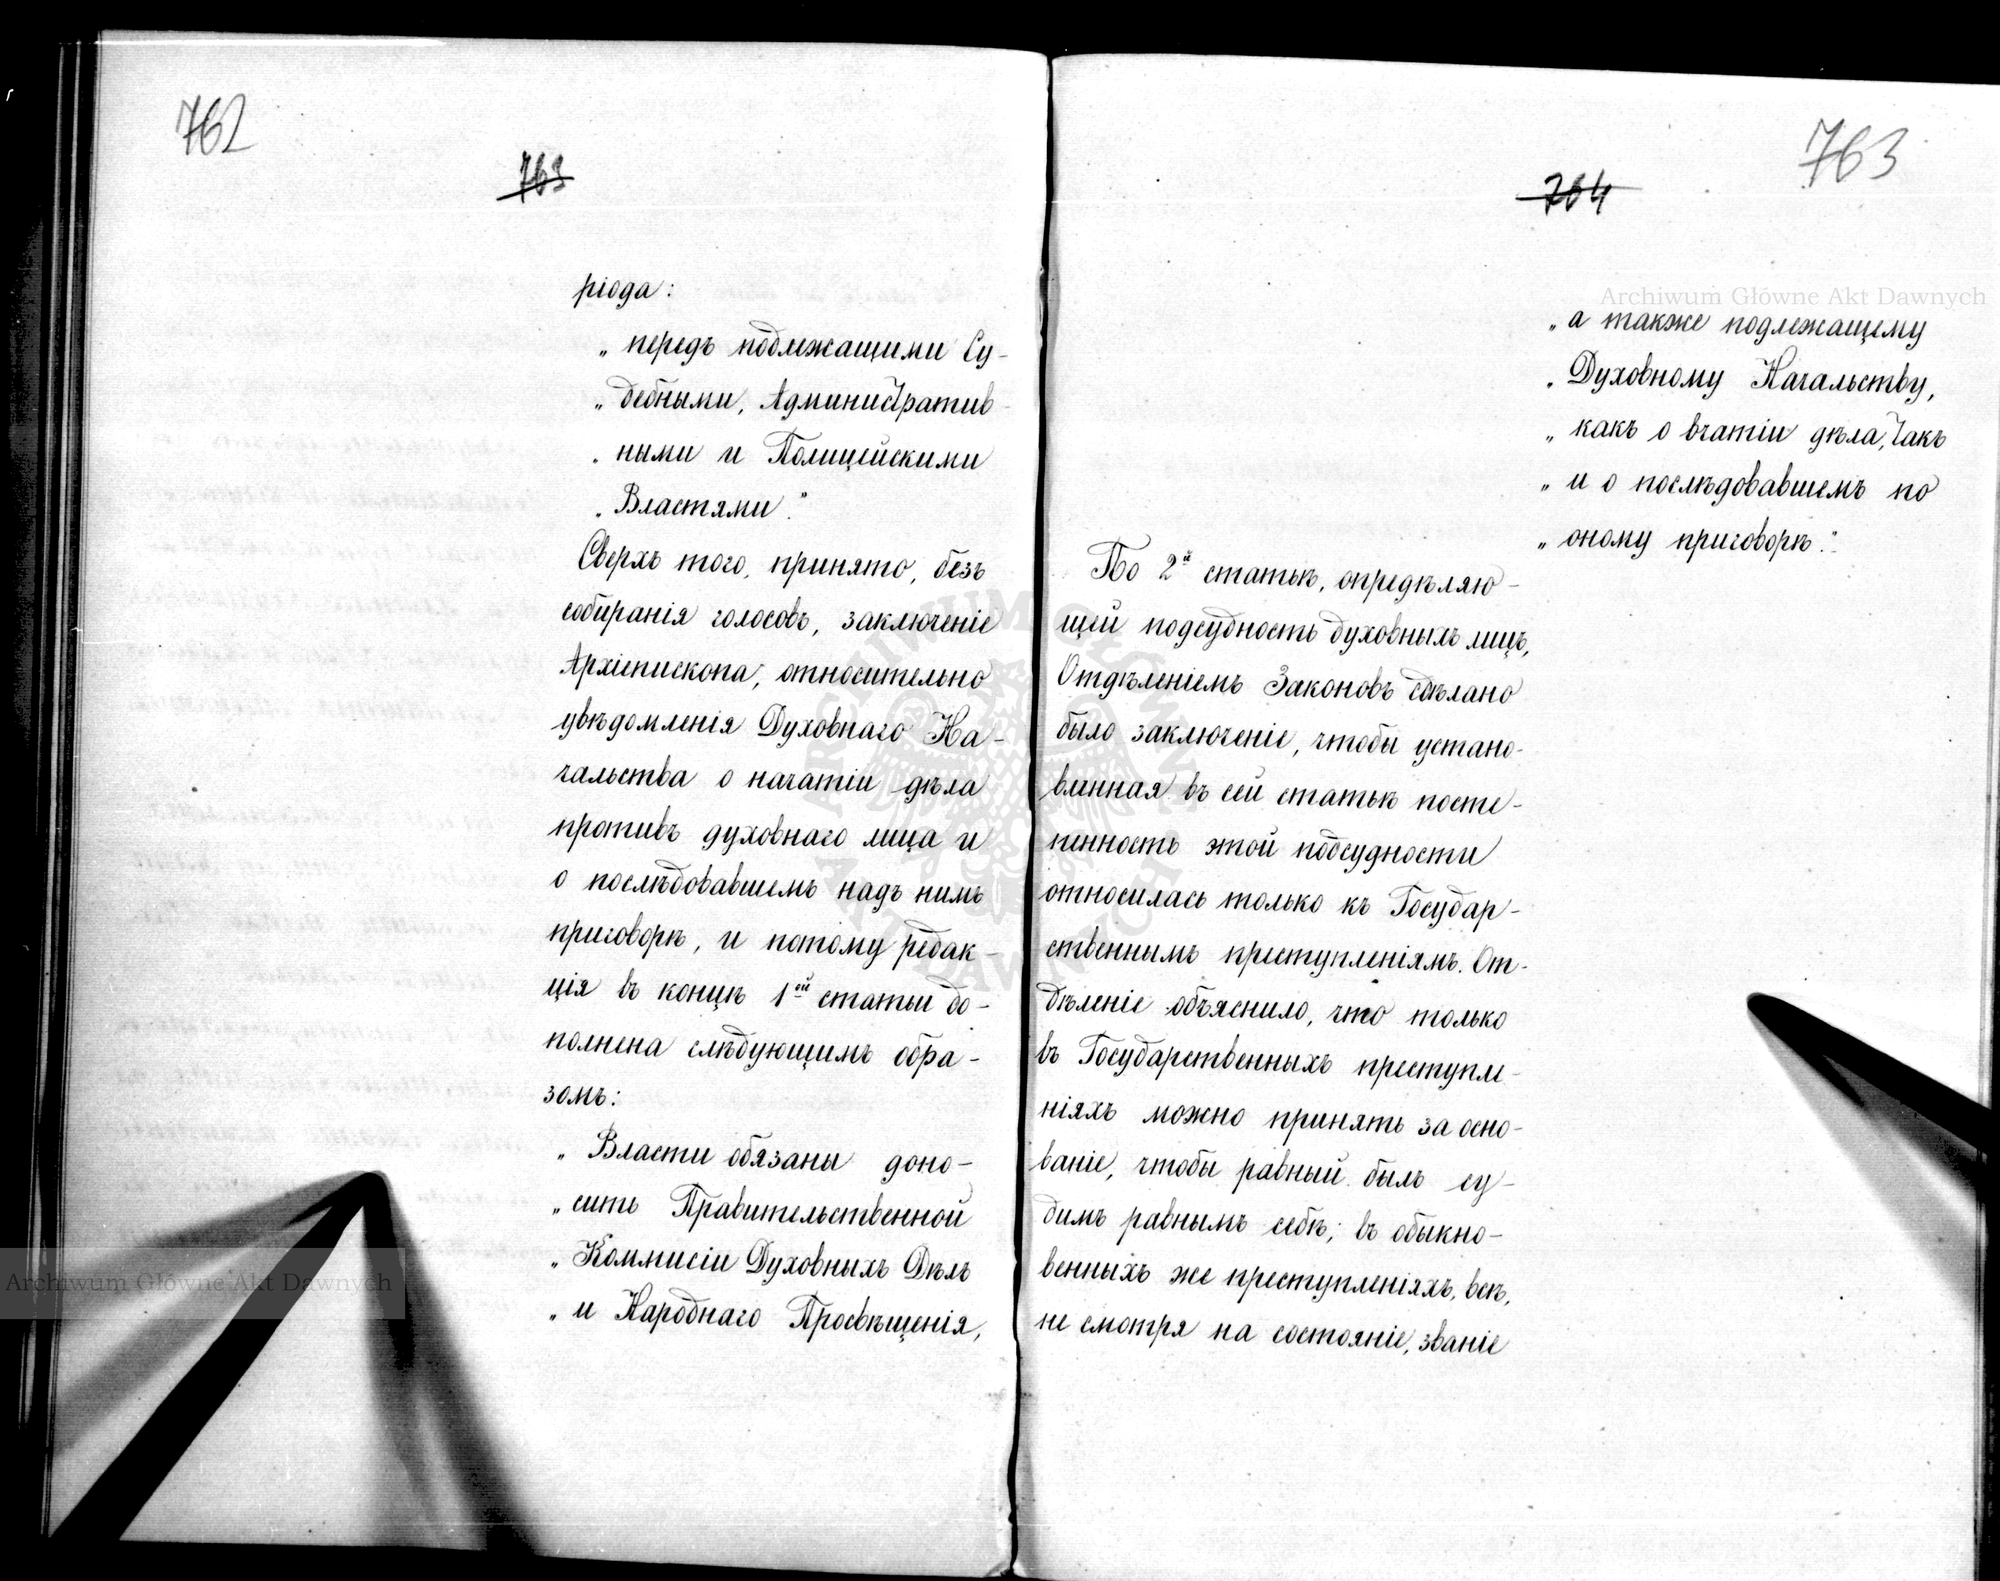 762
763
ріода:
„ передъ подлежащими Су-
„ дебными, Административ-
„ ными и Полицейскими
„ Властями."
Сверхъ того, принято, безъ
собиранія голосовъ, заключеніе
Архіепископа, относительно
увѣдомленія Духовнаго На-
чальства о начатіи дѣла
противъ духовнаго лица и
о послѣдовавшемъ надъ нимъ
приговорѣ, и потому редак-
ція въ концѣ 1ой статьи до-
полнена слѣдующимъ обра-
зомъ:
„ Власти обязаны доно-
„ сить Правительственной
„ Коммисіи Духовныхъ Дѣлъ
„ и Народнаго Просвѣщенія,
763
764
„ а также подлежащему
„ Духовному Начальству,
„ какъ о вчатіи дѣла, такъ
„ и о послѣдовавшемъ по
„ оному приговорѣ."
По 2й статьѣ, опредѣляю-
щей подсудность духовныхъ лицъ,
Отдѣленіемъ Законовъ сдѣлано
было заключеніе, чтобы устано-
вленная въ сей статьѣ посте-
пенность этой подсудности
относилась только къ Государ-
ственнымъ преступленіямъ. От-
дѣленіе объяснило, что только
въ Государственныхъ преступле-
ніяхъ можно принять за осно-
ваніе, чтобы равный былъ су-
димъ равнымъ себѣ; въ обыкно-
венныхъ же преступленіяхъ, всѣ,
не смотря на состояніе, званіе
Archiwum Główne Akt Dawnych
Archiwum Główne Akt Dawnych